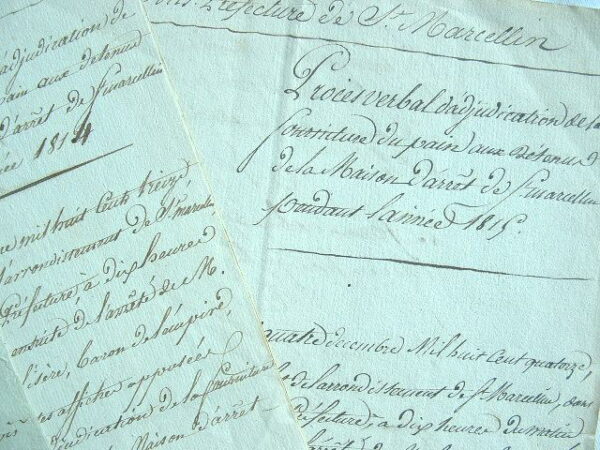 djudication de
pain aux détenus
d'arrêt de St marcellin
ée 1814
mil huit Cent treize,
l'arrondissement de St marcelin
Préfecture, à dix heures
ensuite de l'arrêté de M.
isère, baron de l'empire,
affiches apposées
djudication de la fourniture
Maison d'arrêt
Préfecture de St Marcellin
Procès verbal d'adjudication de la
fourniture du pain aux détenus
de la Maison d'arrêt de St marcellin
pendant l'année 1815.
quatre décembre Mil huit Cent quatorze,
de l'arrondissement de St Marcellin, dans
éfecture, à dix heures du matin